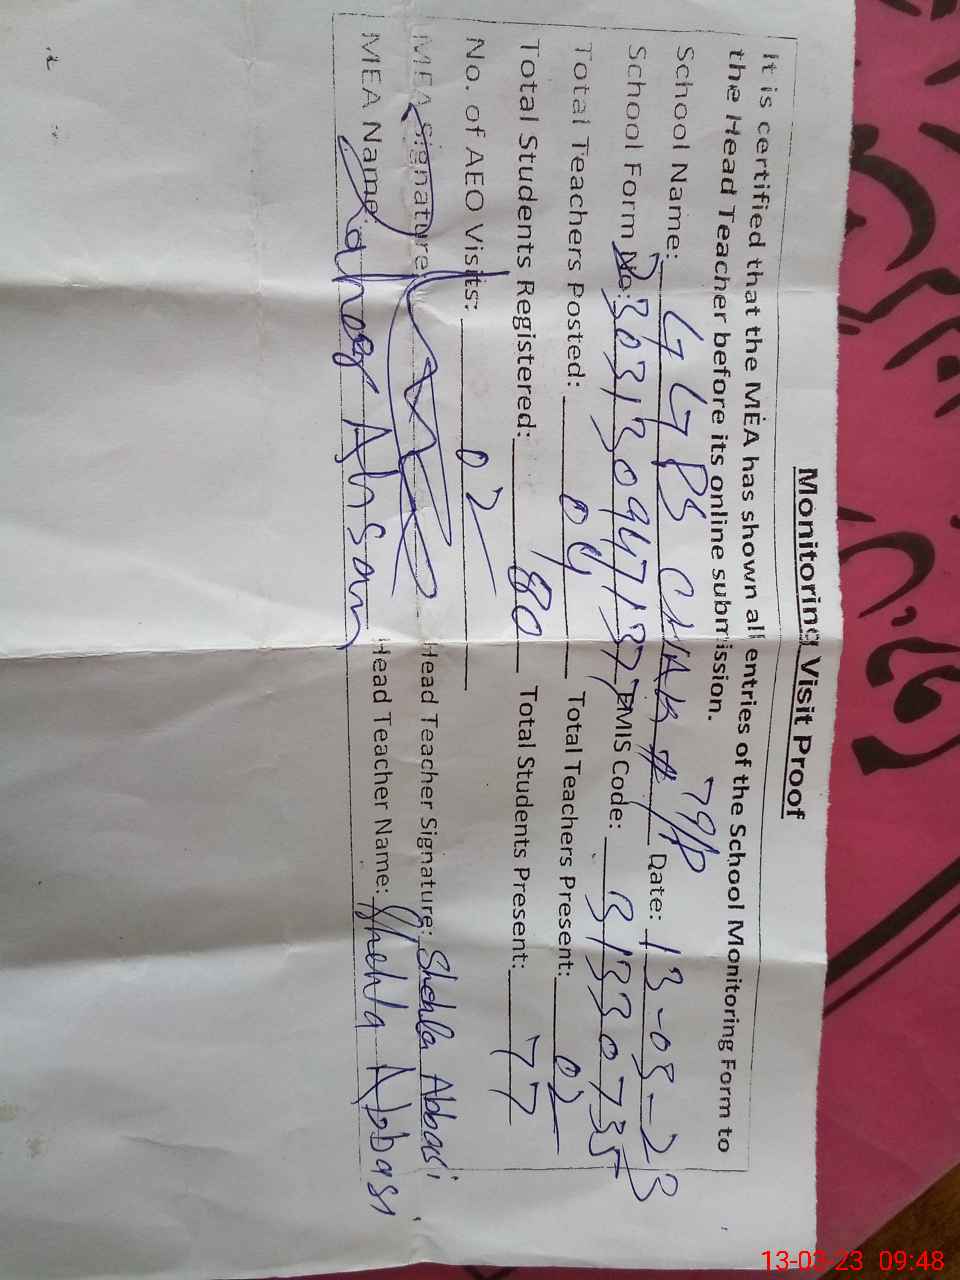 Monitoring Visit Proof
It is certified that the MEA has shown all entries of the School Monitoring Form to
the Head Teacher before its online submission.
School Name: GGPS CHAK # 79/P Date: 13-03-23
School Form No: EMIS Code: 31330735
Total Teachers Posted: 04 Total Teachers Present: 02
Total Students Registered: 80 Total Students Present: 77
No. of AEO Visits: 02
MEA Signature: Head Teacher Signature: Shehla Abbasi
MEA Name: Ahsan Head Teacher Name: Shehla Abbasi
13-03-23 09:48